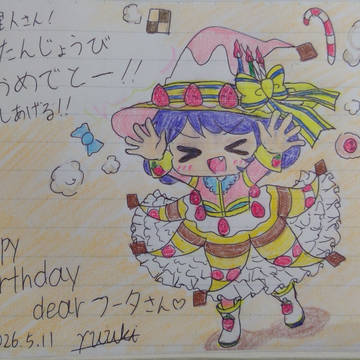 星人さん!
たんじょうび
うめでとー!!
しあげる!!
ppy
irthday
dear フータさん♡
026.5.11 yuzuki